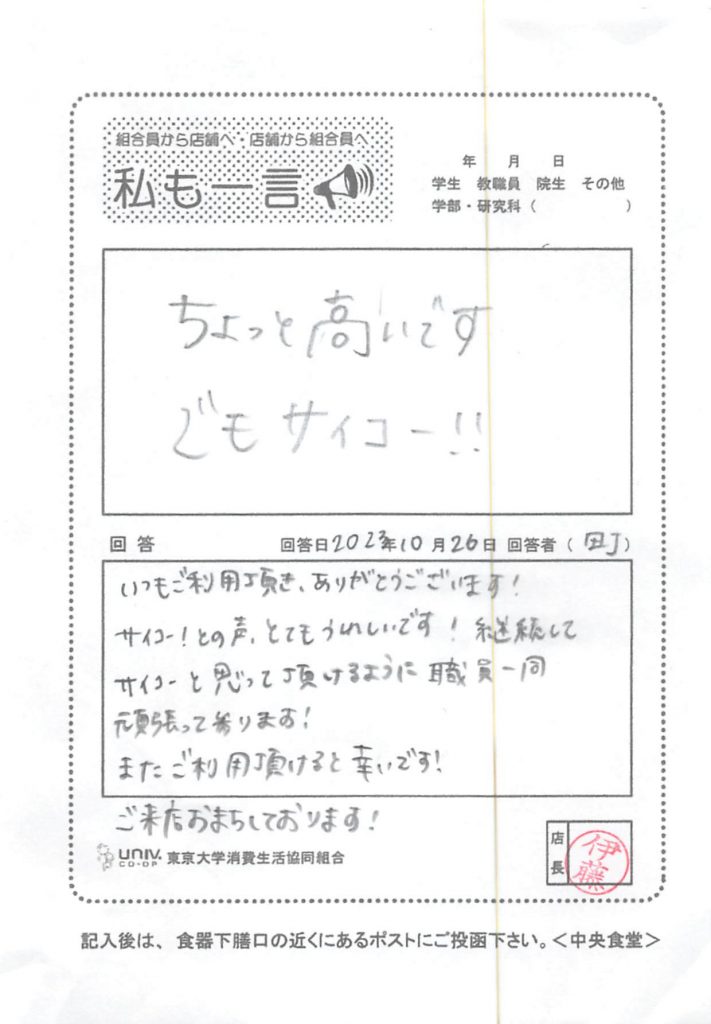 組合員から店舗へ・店舗から組合員へ
私も一言
年 月 日
学生 教職員 院生 その他
学部・研究科（ ）
ちょっと高いです
でもサイコー!!
回答 回答日2023年10月26日 回答者（ 田丁）
いつもご利用頂き、ありがとうございます!
サイコー!との声、とてもうれしいです! 継続して
サイコーと思って頂けるように職員一同
頑張って参ります!
またご利用頂けると幸いです!
ご来店おまちしております!
UNIV. CO-OP 東京大学消費生活協同組合
店長 伊藤
記入後は、食器下膳口の近くにあるポストにご投函下さい。＜中央食堂＞